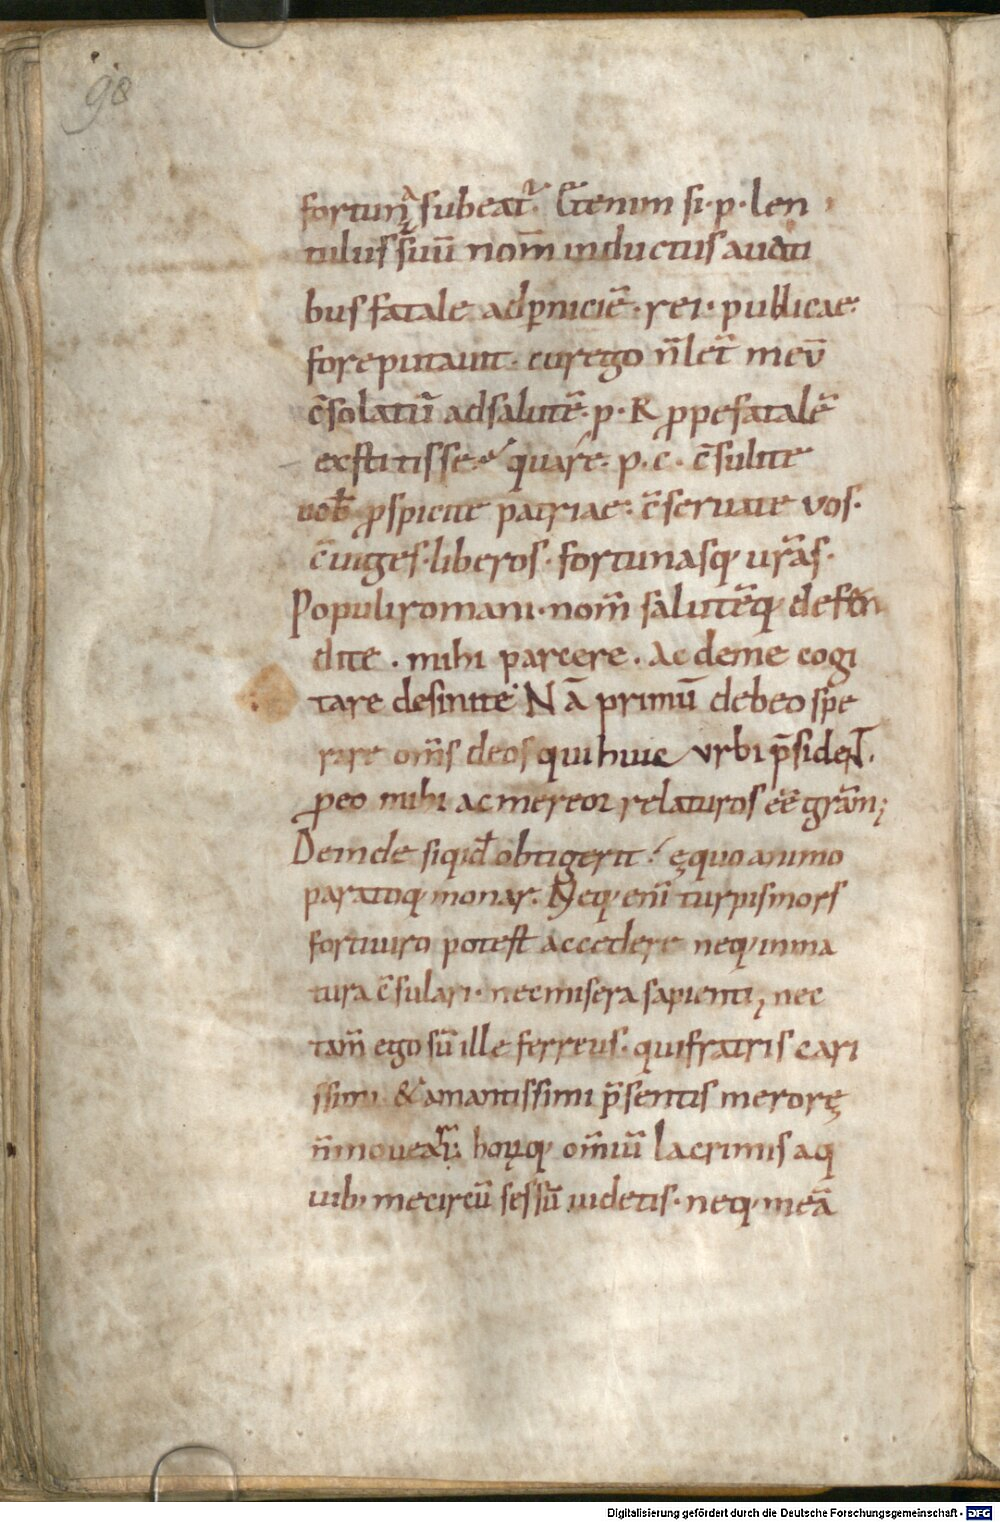 98
fortunā subeat᷑. Etenim si·p·len
tulus suū nom̄ inductus auati
bus fatale adp̲niciē·rei·publicae·
foreputauit·curego n̄let᷑ meū
c̄solatū adsalutē·p·R ꝓpefatalē
exstitisse· quare·p·c·c̄sulite
uob̄ ꝓspicite patriae·c̄seruate vos·
c̄iuges·liberos·fortunasq; ur̄as·
Populiromani·nom̄ salutēq; defen
dite·mihi parcere·Ac deme cogi
tare desinite· NĀ primū debeo spe
rare om̄s deos qui huic vrbi p̄sideNT·
ꝓeo mihi ac mereor relaturos eē̄ grām;
Deinde siqid̄ obtigerit· ęquo animo
paratoq; moriar. Neq; eni᷑ turpismors
fortiuiro potest accedere neq; inma
tura c̄sulari·necmisera sapienti; nec
tam̄ ego sū ille ferreus·quifratris cari
ssimi & amantissimi p̄sentis merorę
n̄moueār; hoꝝq; om̄iū lacrimis aq
uib; mecircū sessū uidetis·neq; meā
Digitalisierung gefördert durch die Deutsche Forschungsgemeinschaft - DFG